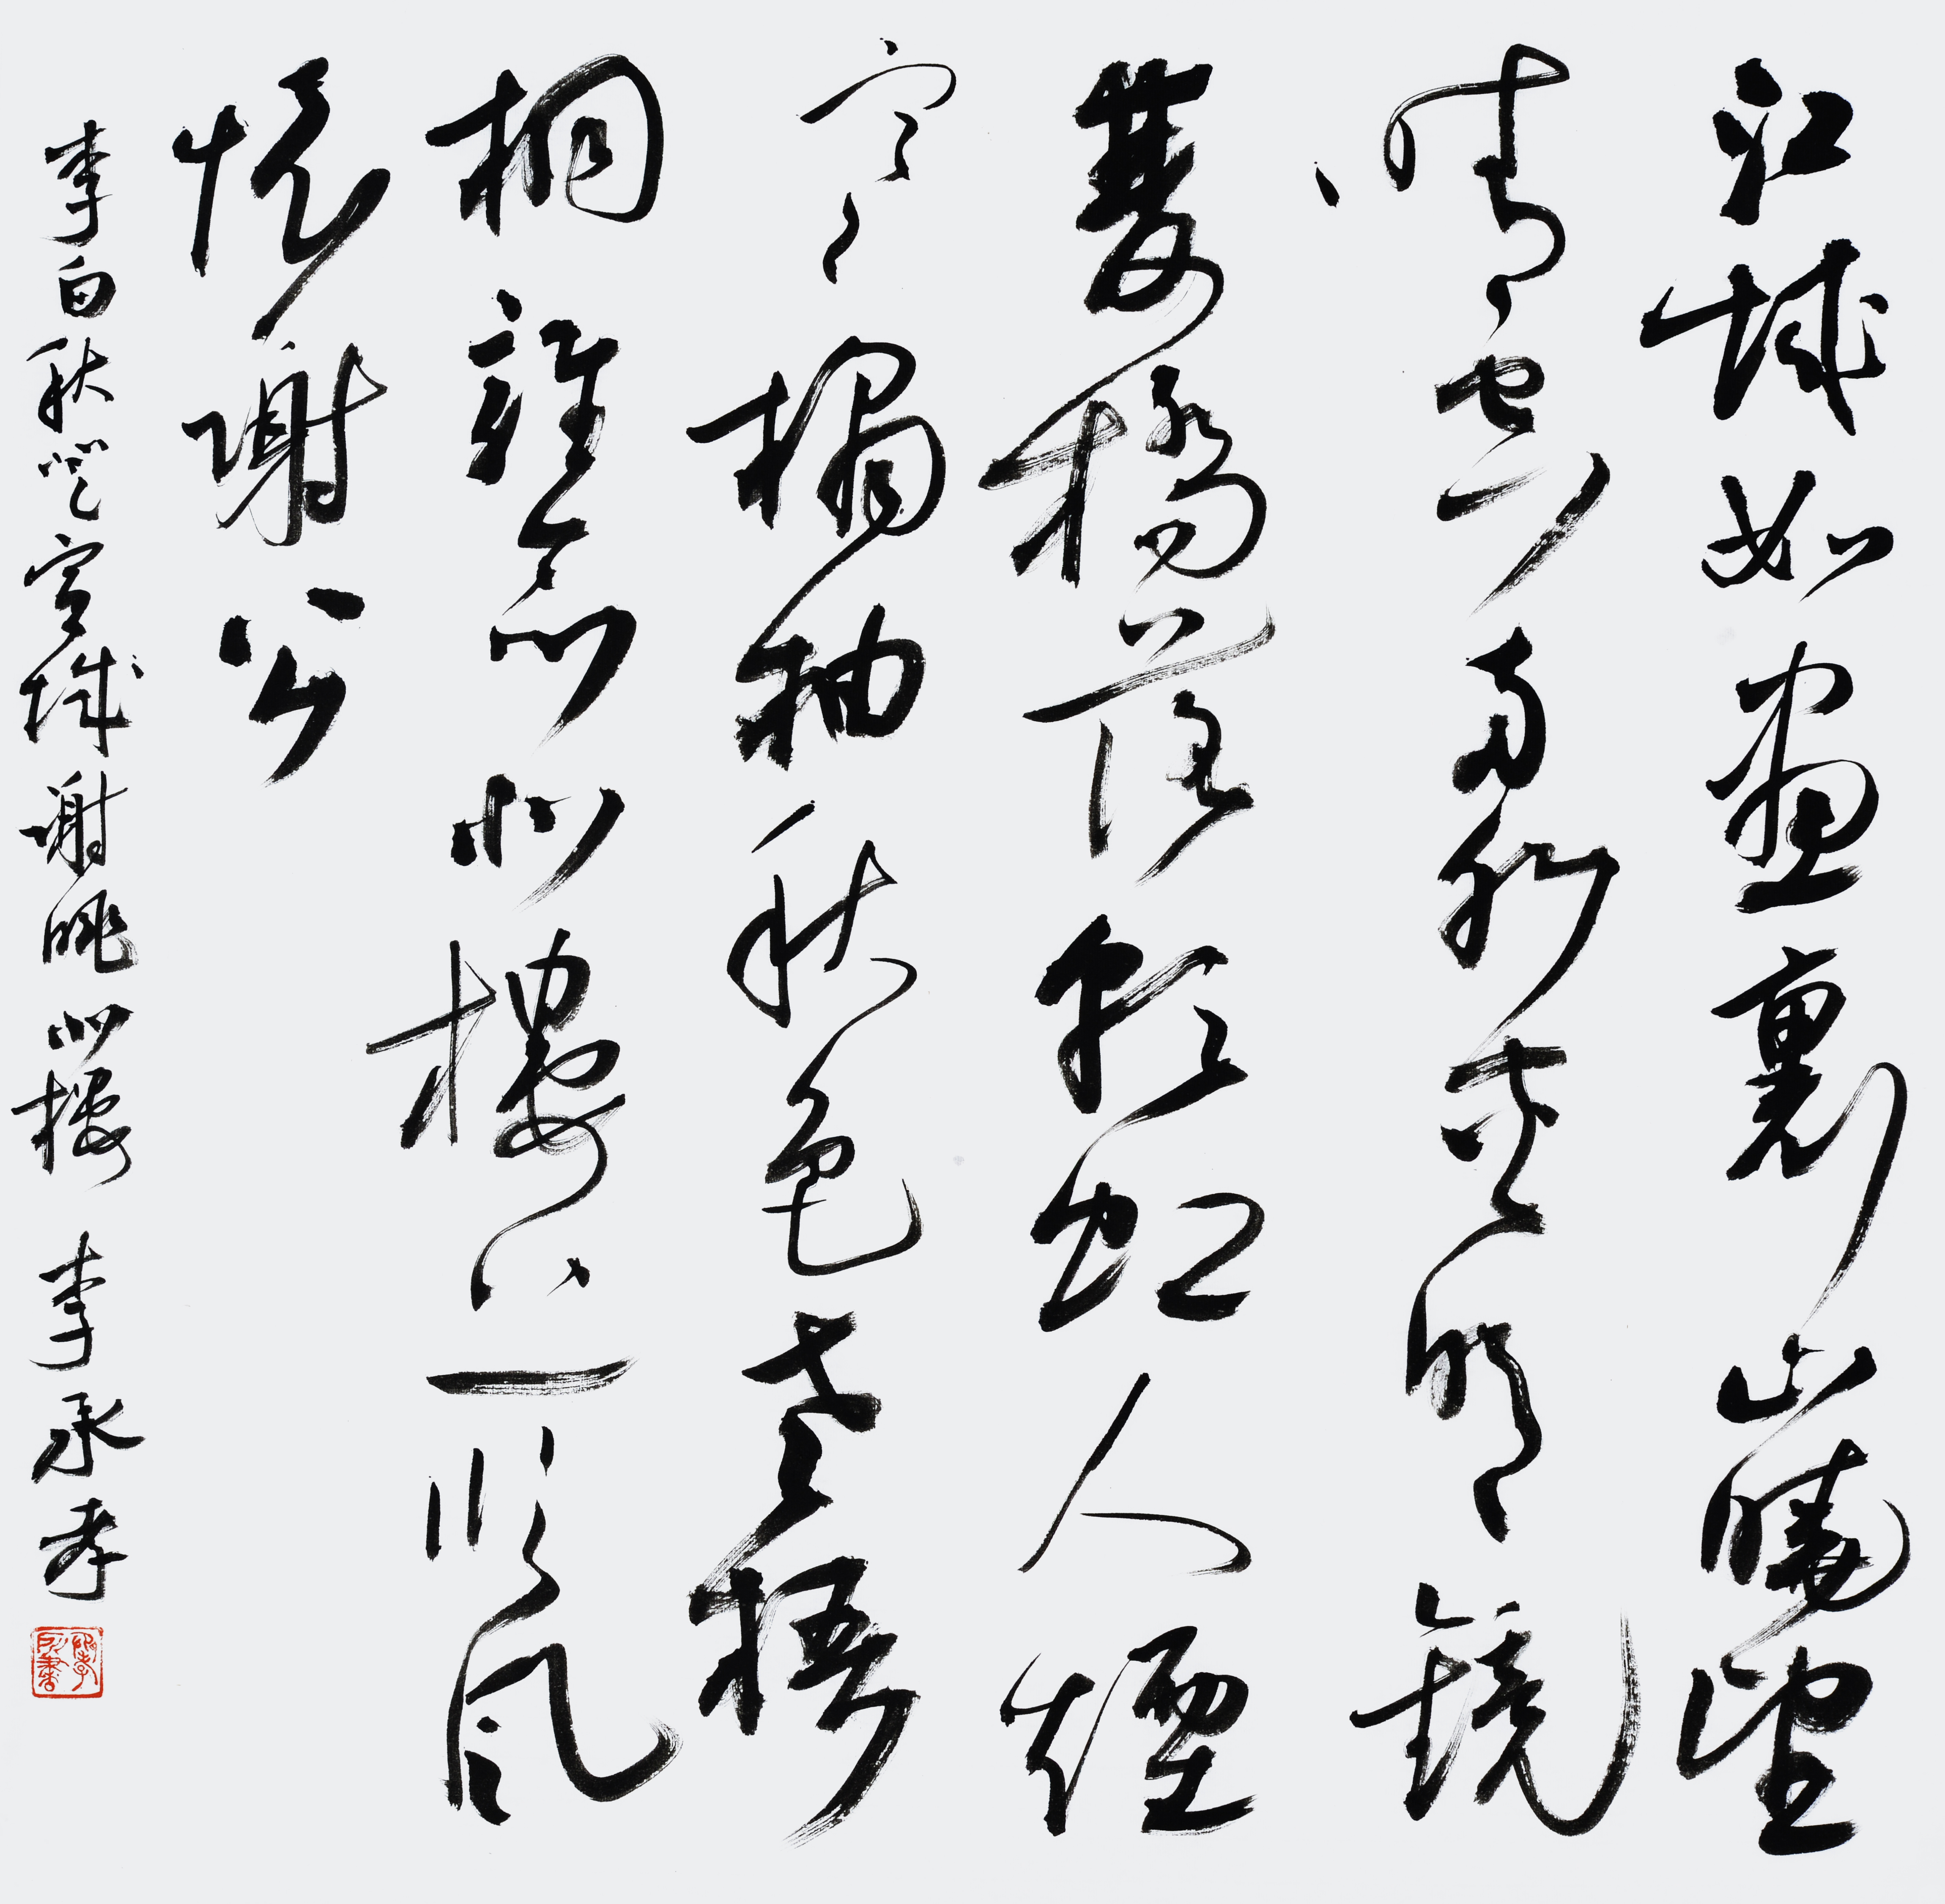 江城如畫裏山曉望
晴空兩水夾明鏡
雙橋落彩虹人煙
寒橘柚秋色老梧
桐誰念北樓上臨風
懷謝公
李白秋登宣城謝朓北樓 李承孝